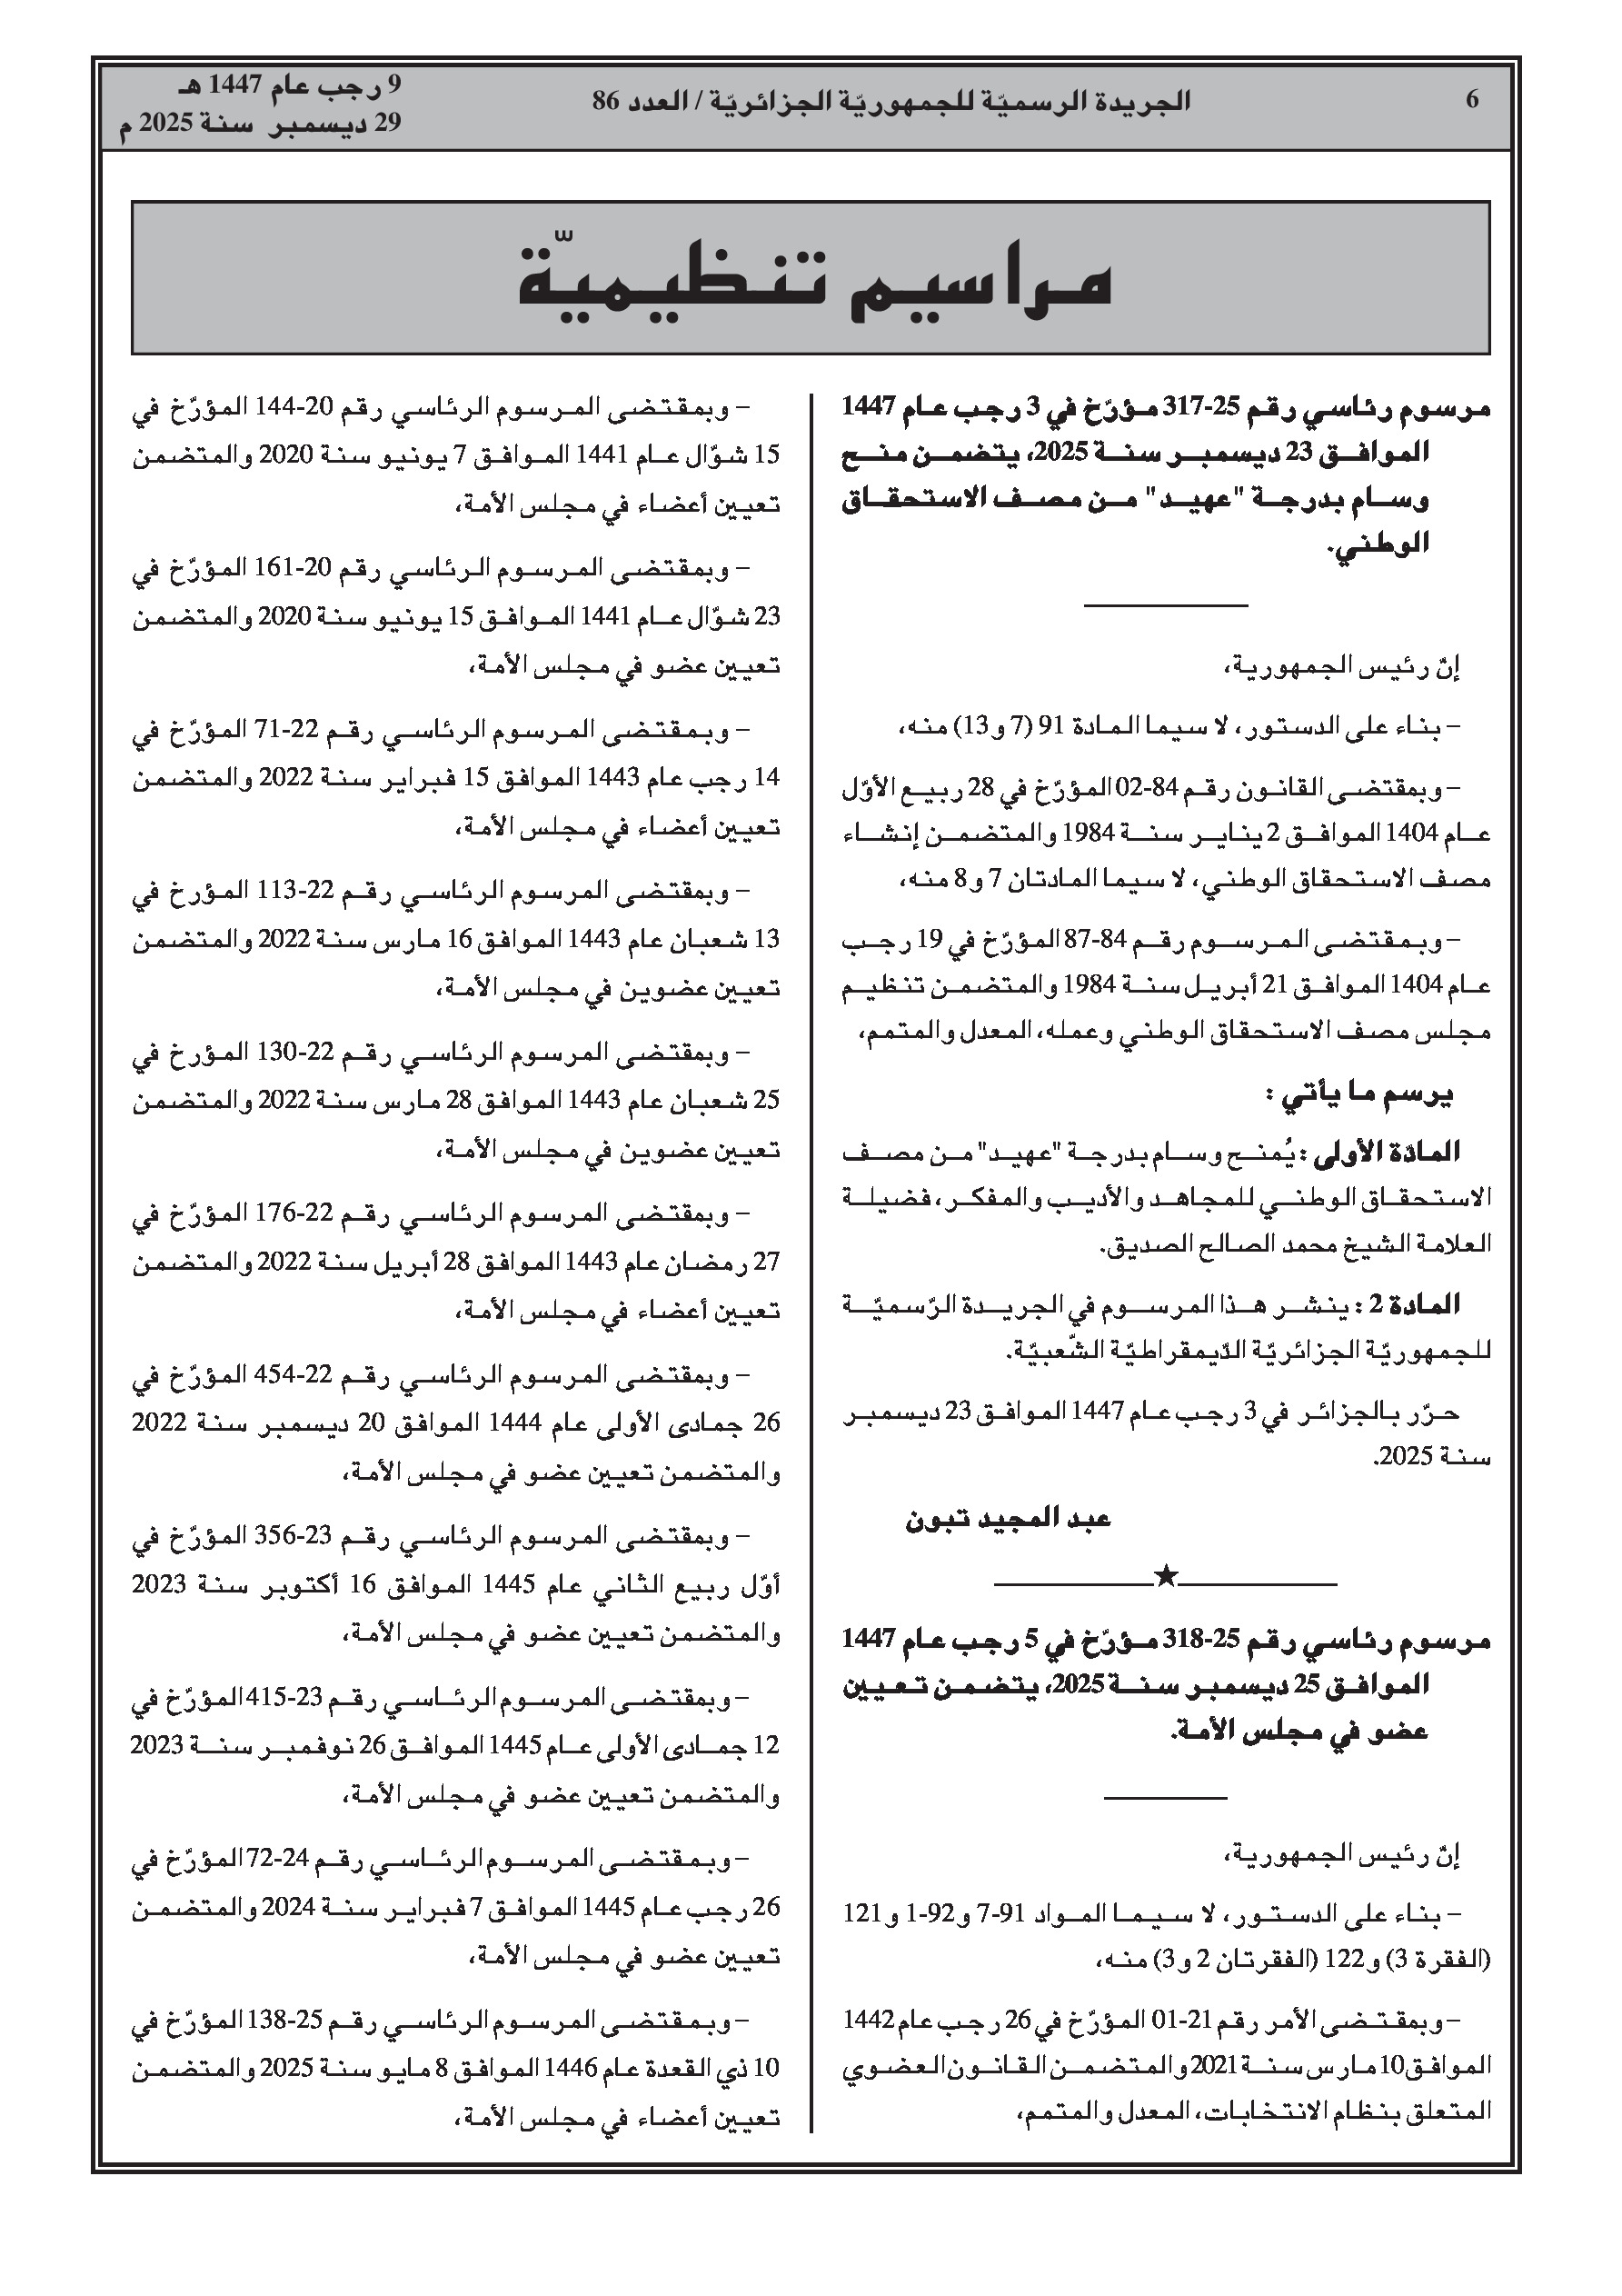 6
الجريدة الرسميّة للجمهوريّة الجزائريّة / العدد 86
9 رجب عام 1447 هـ
29 ديسمبر سنة 2025 م
مراسيم تنظيميّة
مرسوم رئاسي رقم 25-317 مؤرّخ في 3 رجب عام 1447
الموافق 23 ديسمبر سنة 2025، يتضمن منح
وسام بدرجة "عهيد" من مصف الاستحقاق
الوطني.
إنّ رئيس الجمهورية،
– بناء على الدستور، لا سيما المادة 91 (7 و13) منه،
– وبمقتضى القانون رقم 84-02 المؤرّخ في 28 ربيع الأوّل
عام 1404 الموافق 2 يناير سنة 1984 والمتضمن إنشاء
مصف الاستحقاق الوطني، لا سيما المادتان 7 و8 منه،
– وبمقتضى المرسوم رقم 84-87 المؤرّخ في 19 رجب
عام 1404 الموافق 21 أبريل سنة 1984 والمتضمن تنظيم
مجلس مصف الاستحقاق الوطني وعمله، المعدل والمتمم،
يرسم ما يأتي :
المادّة الأولى : يُمنح وسام بدرجة "عهيد" من مصف
الاستحقاق الوطني للمجاهد والأديب والمفكر، فضيلة
العلامة الشيخ محمد الصالح الصديق.
المادة 2 : ينشر هذا المرسوم في الجريدة الرّسميّة
للجمهوريّة الجزائريّة الدّيمقراطيّة الشّعبيّة.
حرّر بالجزائر في 3 رجب عام 1447 الموافق 23 ديسمبر
سنة 2025.
عبد المجيد تبون
★
مرسوم رئاسي رقم 25-318 مؤرّخ في 5 رجب عام 1447
الموافق 25 ديسمبر سنة 2025، يتضمن تعيين
عضو في مجلس الأمة.
إنّ رئيس الجمهورية،
– بناء على الدستور، لا سيما المواد 91-7 و92-1 و121
(الفقرة 3) و122 (الفقرتان 2 و3) منه،
– وبمقتضى الأمر رقم 21-01 المؤرّخ في 26 رجب عام 1442
الموافق 10 مارس سنة 2021 والمتضمن القانون العضوي
المتعلق بنظام الانتخابات، المعدل والمتمم،
– وبمقتضى المرسوم الرئاسي رقم 20-144 المؤرّخ في
15 شوّال عام 1441 الموافق 7 يونيو سنة 2020 والمتضمن
تعيين أعضاء في مجلس الأمة،
– وبمقتضى المرسوم الرئاسي رقم 20-161 المؤرّخ في
23 شوّال عام 1441 الموافق 15 يونيو سنة 2020 والمتضمن
تعيين عضو في مجلس الأمة،
– وبمقتضى المرسوم الرئاسي رقم 22-71 المؤرّخ في
14 رجب عام 1443 الموافق 15 فبراير سنة 2022 والمتضمن
تعيين أعضاء في مجلس الأمة،
– وبمقتضى المرسوم الرئاسي رقم 22-113 المؤرّخ في
13 شعبان عام 1443 الموافق 16 مارس سنة 2022 والمتضمن
تعيين عضوين في مجلس الأمة،
– وبمقتضى المرسوم الرئاسي رقم 22-130 المؤرّخ في
25 شعبان عام 1443 الموافق 28 مارس سنة 2022 والمتضمن
تعيين عضوين في مجلس الأمة،
– وبمقتضى المرسوم الرئاسي رقم 22-176 المؤرّخ في
27 رمضان عام 1443 الموافق 28 أبريل سنة 2022 والمتضمن
تعيين أعضاء في مجلس الأمة،
– وبمقتضى المرسوم الرئاسي رقم 22-454 المؤرّخ في
26 جمادى الأولى عام 1444 الموافق 20 ديسمبر سنة 2022
والمتضمن تعيين عضو في مجلس الأمة،
– وبمقتضى المرسوم الرئاسي رقم 23-356 المؤرّخ في
أوّل ربيع الثاني عام 1445 الموافق 16 أكتوبر سنة 2023
والمتضمن تعيين عضو في مجلس الأمة،
– وبمقتضى المرسوم الرئاسي رقم 23-415 المؤرّخ في
12 جمادى الأولى عام 1445 الموافق 26 نوفمبر سنة 2023
والمتضمن تعيين عضو في مجلس الأمة،
– وبمقتضى المرسوم الرئاسي رقم 24-72 المؤرّخ في
26 رجب عام 1445 الموافق 7 فبراير سنة 2024 والمتضمن
تعيين عضو في مجلس الأمة،
– وبمقتضى المرسوم الرئاسي رقم 25-138 المؤرّخ في
10 ذي القعدة عام 1446 الموافق 8 مايو سنة 2025 والمتضمن
تعيين أعضاء في مجلس الأمة،